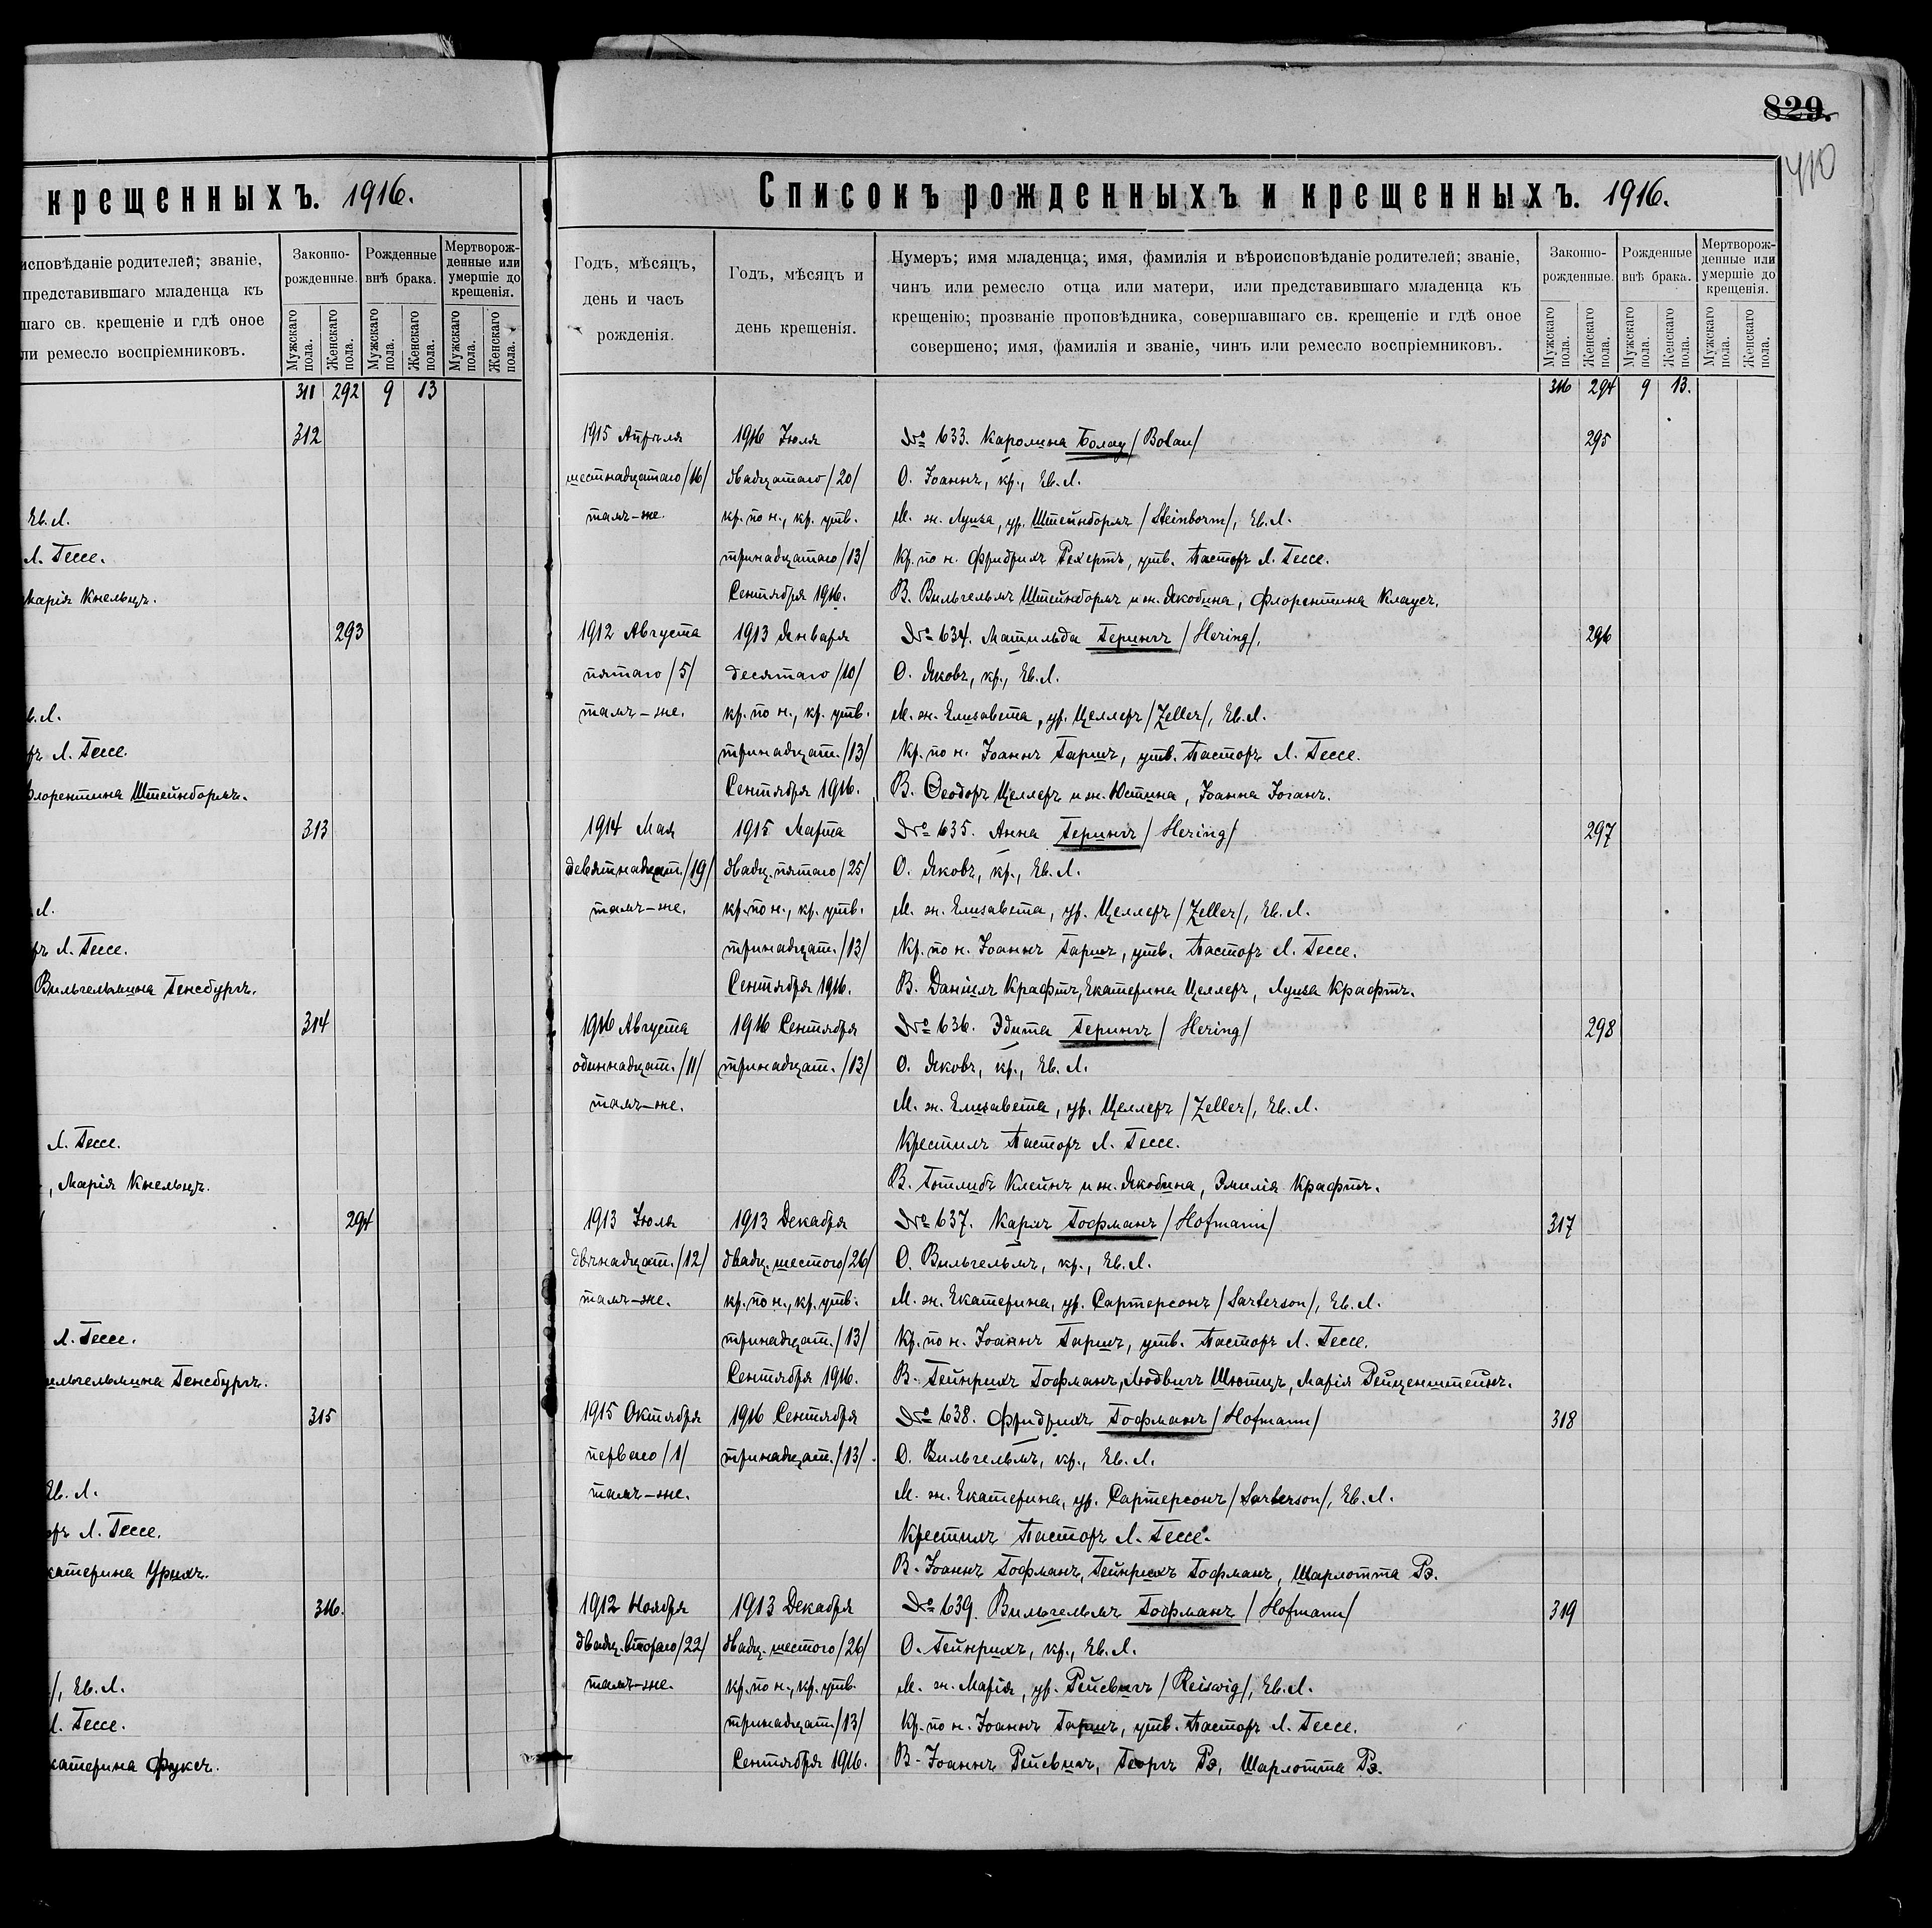 крещенныхъ. 1916.
исповѣданіе родителей; званіе,
представившаго младенца къ
шаго св. крещеніе и гдѣ оное
ли ремесло воспріемниковъ.
Законно-
рожденные.
Рожденные
внѣ брака.
Мертворож-
денные или
умершіе до
крещенія.
Мужскаго пола.
Женскаго пола.
Мужскаго пола.
Женскаго пола.
Мужскаго пола.
Женскаго пола.
311 292 9 13
312
Ев. Л.
Л. Гессе.
марія Кнельцъ.
293
в. Л.
ръ Л. Гессе.
Флорентина Штейнбормъ.
313
Л.
ръ Л. Гессе.
Вильгельмина Генсбургъ.
314
Л. Гессе.
, Марія Кнельцъ.
294
Л. Гессе.
ильгельмина Генсбургъ.
315
Ев. Л.
оръ Л. Гессе.
катерина Урихъ.
316.
/, Ев. Л.
Л. Гессе.
катерина Фуксъ.
829.
410
Списокъ рожденныхъ и крещенныхъ. 1916.
Годъ, мѣсяцъ,
день и часъ
рожденія.
Годъ, мѣсяцъ и
день крещенія.
Нумеръ; имя младенца; имя, фамилія и вѣроисповѣданіе родителей; званіе,
чинъ или ремесло отца или матери, или представившаго младенца къ
крещенію; прозваніе проповѣдника, совершавшаго св. крещеніе и гдѣ оное
совершено; имя, фамилія и званіе, чинъ или ремесло воспріемниковъ.
Законно-
рожденные.
Рожденные
внѣ брака.
Мертворож-
денные или
умершіе до
крещенія.
Мужскаго пола.
Женскаго пола.
Мужскаго пола.
Женскаго пола.
Мужскаго пола.
Женскаго пола.
316 294 9 13.
1915 Апрѣля 1916 Іюля № 633. Каролина Болау /Bolau/ 295
шестнадцатаго /16/ двадцатаго /20/ О. Іоаннъ, кр., Ев. Л.
тамъ-же. кр. по н., кр. утв. М. ж. Луиза, ур. Штейнбормъ /Steinborm/, Ев. Л.
тринадцатаго /13/ Кр. по н. Фридрихъ Рехертъ, утв. Пасторъ Л. Гессе.
Сентября 1916. В. Вильгельмъ Штейнбормъ и ж. Якобина, Флорентина Клаусъ.
1912 Августа 1913 Января № 634. Матильда Герингъ /Hering/, 296
пятаго /5/ десятаго /10/ О. Яковъ, кр., Ев. Л.
тамъ-же. кр. по н., кр. утв. М. ж. Елизавета, ур. Целлеръ /Zeller/, Ев. Л.
тринадцат. /13/ Кр. по н. Іоаннъ Гаршъ, утв. Пасторъ Л. Гессе.
Сентября 1916. В. Ѳеодоръ Целлеръ и ж. Юстина, Іоанна Іоганъ.
1914 Мая 1915 Марта № 635. Анна Герингъ /Hering/ 297
девятнадцат. /19/ двадц. пятаго /25/ О. Яковъ, кр., Ев. Л.
тамъ-же. кр. по н., кр. утв. М. ж. Елизавета, ур. Целлеръ /Zeller/, Ев. Л.
тринадцат. /13/ Кр. по н. Іоаннъ Гаршъ, утв. Пасторъ Л. Гессе.
Сентября 1916. В. Даніилъ Крафтъ, Екатерина Целлеръ, Луиза Крафтъ.
1916 Августа 1916 Сентября № 636. Эдита Герингъ /Hering/ 298
одиннадцат. /11/ тринадцат. /13/ О. Яковъ, кр., Ев. Л.
тамъ-же. М. ж. Елизавета, ур. Целлеръ /Zeller/, Ев. Л.
Крестилъ Пасторъ Л. Гессе.
В. Готлибъ Клейнъ и ж. Якобина, Эмилія Крафтъ.
1913 Іюля 1913 Декабря № 637. Карлъ Гофманъ /Hofmann/ 317
двѣнадцат. /12/ двадц. шестого /26/ О. Вильгельмъ, кр., Ев. Л.
тамъ-же. кр. по н., кр. утв. М. ж. Екатерина, ур. Сартерсонъ /Sarterson/, Ев. Л.
тринадцат. /13/ Кр. по н. Іоаннъ Гаршъ, утв. Пасторъ Л. Гессе.
Сентября 1916. В. Гейнрихъ Гофманъ, Людвигъ Шютцъ, Марія Рейценштейнъ.
1915 Октября 1916 Сентября № 638. Фридрихъ Гофманъ /Hofmann/ 318
перваго /1/ тринадцат. /13/. О. Вильгельмъ, кр., Ев. Л.
тамъ-же. М. ж. Екатерина, ур. Сартерсонъ /Sarterson/, Ев. Л.
Крестилъ Пасторъ Л. Гессе.
В. Іоаннъ Гофманъ, Гейнрихъ Гофманъ, Шарлотта Рэ.
1912 Ноября 1913 Декабря № 639. Вильгельмъ Гофманъ /Hofmann/ 319
двадц. второго /22/ двадц. шестого /26/ О. Гейнрихъ, кр., Ев. Л.
тамъ-же. кр. по н., кр. утв. М. ж. Марія, ур. Рейсвигъ /Reiswig/, Ев. Л.
тринадцат. /13/ Кр. по н. Іоаннъ Гаршъ, утв. Пасторъ Л. Гессе.
Сентября 1916. В. Іоаннъ Рейсвигъ, Георгъ Рэ, Шарлотта Рэ.